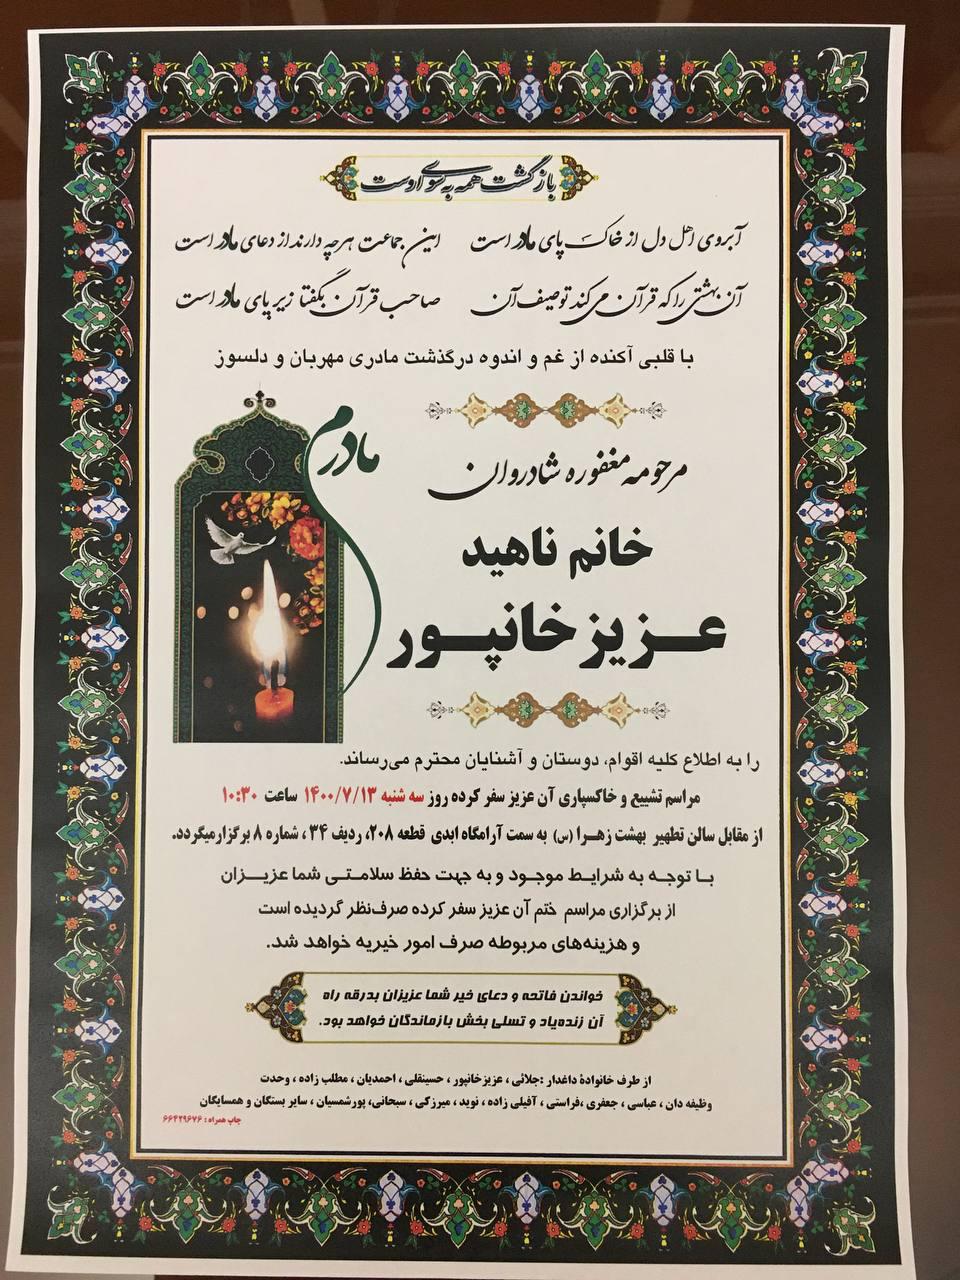 بازگشت همه به سوی اوست
آبروی اهل دل از خاک پای مادر است این جماعت هرچه دارند از دعای مادر است
آن بهشتی را که قرآن می‌کند توصیف آن صاحب قرآن بگفتا زیر پای مادر است
با قلبی آکنده از غم و اندوه درگذشت مادری مهربان و دلسوز
مادرم
مرحومه مغفوره شادروان
خانم ناهید
عزیزخانپور
را به اطلاع کلیه اقوام، دوستان و آشنایان محترم می‌رساند.
مراسم تشییع و خاکسپاری آن عزیز سفر کرده روز سه شنبه ۱۴۰۰/۷/۱۳ ساعت ۱۰:۳۰
از مقابل سالن تطهیر بهشت زهرا (س) به سمت آرامگاه ابدی قطعه ۲۰۸، ردیف ۳۴ ، شماره ۸ برگزارمیگردد.
با توجه به شرایط موجود و به جهت حفظ سلامتی شما عزیزان
از برگزاری مراسم ختم آن عزیز سفر کرده صرف‌نظر گردیده است
و هزینه‌های مربوطه صرف امور خیریه خواهد شد.
خواندن فاتحه و دعای خیر شما عزیزان بدرقه راه
آن زنده‌یاد و تسلی بخش بازماندگان خواهد بود.
از طرف خانوادهٔ داغدار :جلائی ، عزیزخانپور ، حسینقلی ، احمدیان ، مطلب زاده ، وحدت
وظیفه دان ، عباسی ، جعفری ،فراستی ، آفیلی زاده ، نوید ، میرزکی ، سبحانی، پورشمسیان ، سایر بستگان و همسایگان
چاپ همراه : ۶۶۴۲۹۶۷۶